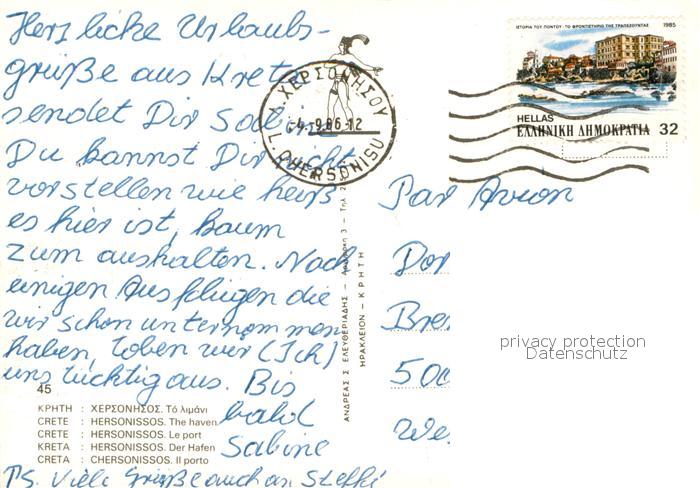 Herzliche Urlaubs-
grüße aus Kreta
sendet Dir
Du kannst Dir nicht
vorstellen wie heiß
es hier ist, kaum
zum aushalten. Nach
einigen Ausflügen die
wir schon unternommen
haben, toben wir (Ich)
uns tüchtig aus. Bis
bald
Sabine
PS. Viele Grüße auch an Steffi
Λ. ΧΕΡΣΟΝΗΣΟΥ
-4.-9.86-12
L. CHERSONISU
ΙΣΤΟΡΙΑ ΤΟΥ ΠΟΝΤΟΥ · ΤΟ ΦΡΟΝΤΙΣΤΗΡΙΟ ΤΗΣ ΤΡΑΠΕΖΟΥΝΤΑΣ 1985
HELLAS
ΕΛΛΗΝΙΚΗ ΔΗΜΟΚΡΑΤΙΑ 32
Par Avion
Bre
500
We
privacy protection
Datenschutz
ΑΝΔΡΕΑΣ Σ. ΕΛΕΥΘΕΡΙΑΔΗΣ – 3 – Τηλ.
ΗΡΑΚΛΕΙΟΝ – ΚΡΗΤΗ
45
ΚΡΗΤΗ : ΧΕΡΣΟΝΗΣΟΣ. Τό λιμάνι
CRETE : HERSONISSOS. The haven
CRETE : HERSONISSOS. Le port
KRETA : HERSONISSOS. Der Hafen
CRETA : CHERSONISSOS. Il porto